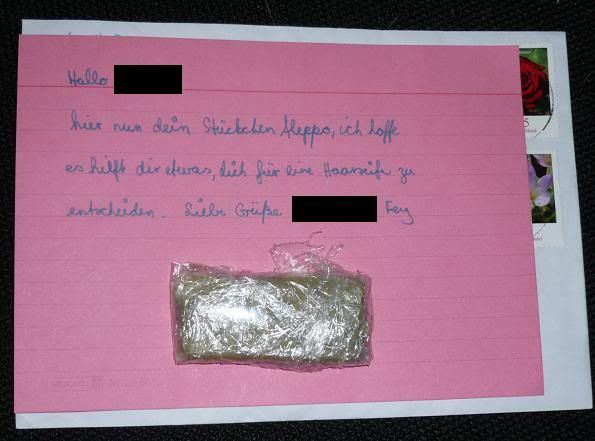 Hallo
hier nun dein Stückchen Aleppo, ich hoffe
es hilft dir etwas, dich für eine Haarseife zu
entscheiden. Liebe Grüße Fey